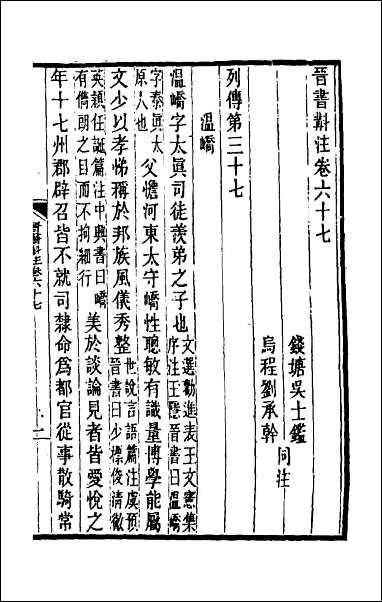 晉書斠注卷六十七
錢塘吳士鑑
同注
烏程劉承幹
列傳第三十七
溫嶠
溫嶠字太眞司徒羨弟之子也文選勸進表王文憲集
序注王隱晉書曰溫嶠
字泰眞太
原人也父憺河東太守嶠性聰敏有識量博學能屬
文少以孝悌稱於邦族風儀秀整世說言語篇注虞預
晉書曰少標俊清徹
英穎任誕篇注中興書曰嶠
有儁朗之目而不拘細行美於談論見者皆愛悅之
年十七州郡辟召皆不就司隸命爲都官從事散騎常
晉書斠注卷六十七
一